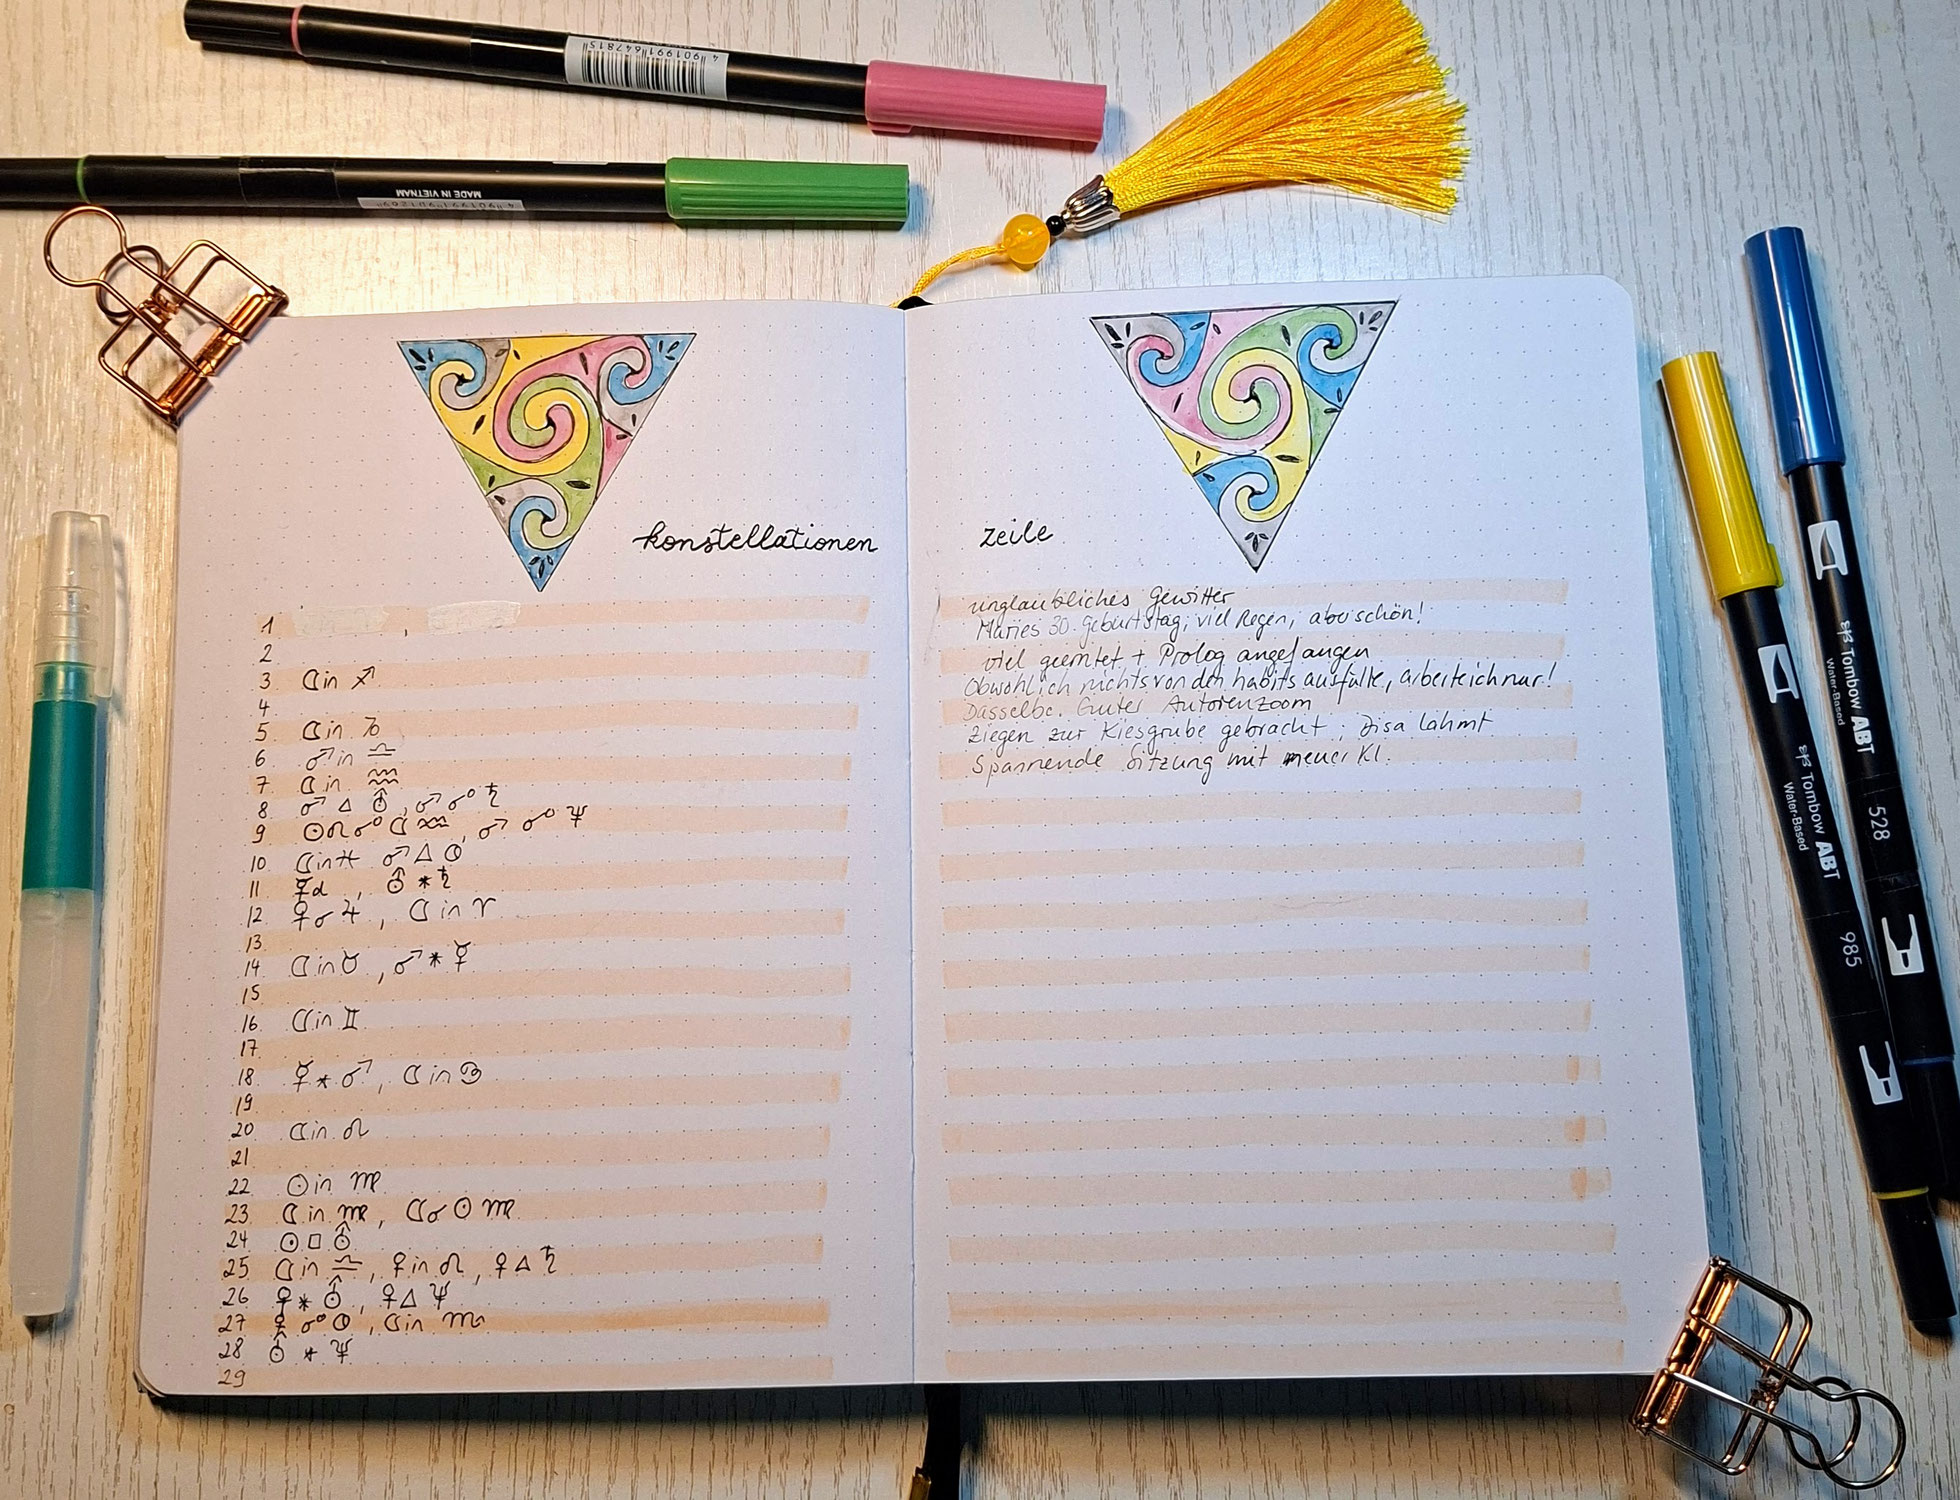 4 901991 647815
MADE IN VIETNAM
4 901991 901269
konstellationen
zeile
1 ,
2
3 ☾ in ♐
4
5 ☾ in ♑
6 ♂ in ♎
7 ☾ in ♒
8 ♂ △ ⛢, ♂ ☍ ♄
9 ☉ ♌ ☍ ☾ ♒, ♂ ☍ ♆
10 ☾ in ♓ ♂ △
11 ☿ d , ⛢ ⚹ ♄
12 ♀ ☌ ♃ , ☾ in ♈
13
14 ☾ in ♉ , ♂ ⚹ ☿
15
16 ☾ in ♊
17
18 ☿ ⚹ ♂, ☾ in ♋
19
20 ☾ in ♌
21
22 ☉ in ♍
23 ☾ in ♍, ☾ ☌ ☉ ♍
24 ☉ □ ⛢
25 ☾ in ♎, ♀ in ♌, ♀ △ ♄
26 ♀ ⚹ ⛢ , ♀ △ ♆
27 ☍ , ☾ in ♏
28 ⛢ ⚹ ♆
29
unglaubliches Gewitter
Maries 30. Geburtstag, viel Regen, aber schön!
viel geerntet + Prolog angefangen
Obwohl ich nichts von den habits ausfülle, arbeite ich nur!
Dasselbe. Guter Autorenzoom
Ziegen zur Kiesgrube gebracht; Disa lahmt
Spannende Sitzung mit neuer KI.
Tombow ABT
Water-Based
528
Tombow ABT
Water-Based
985